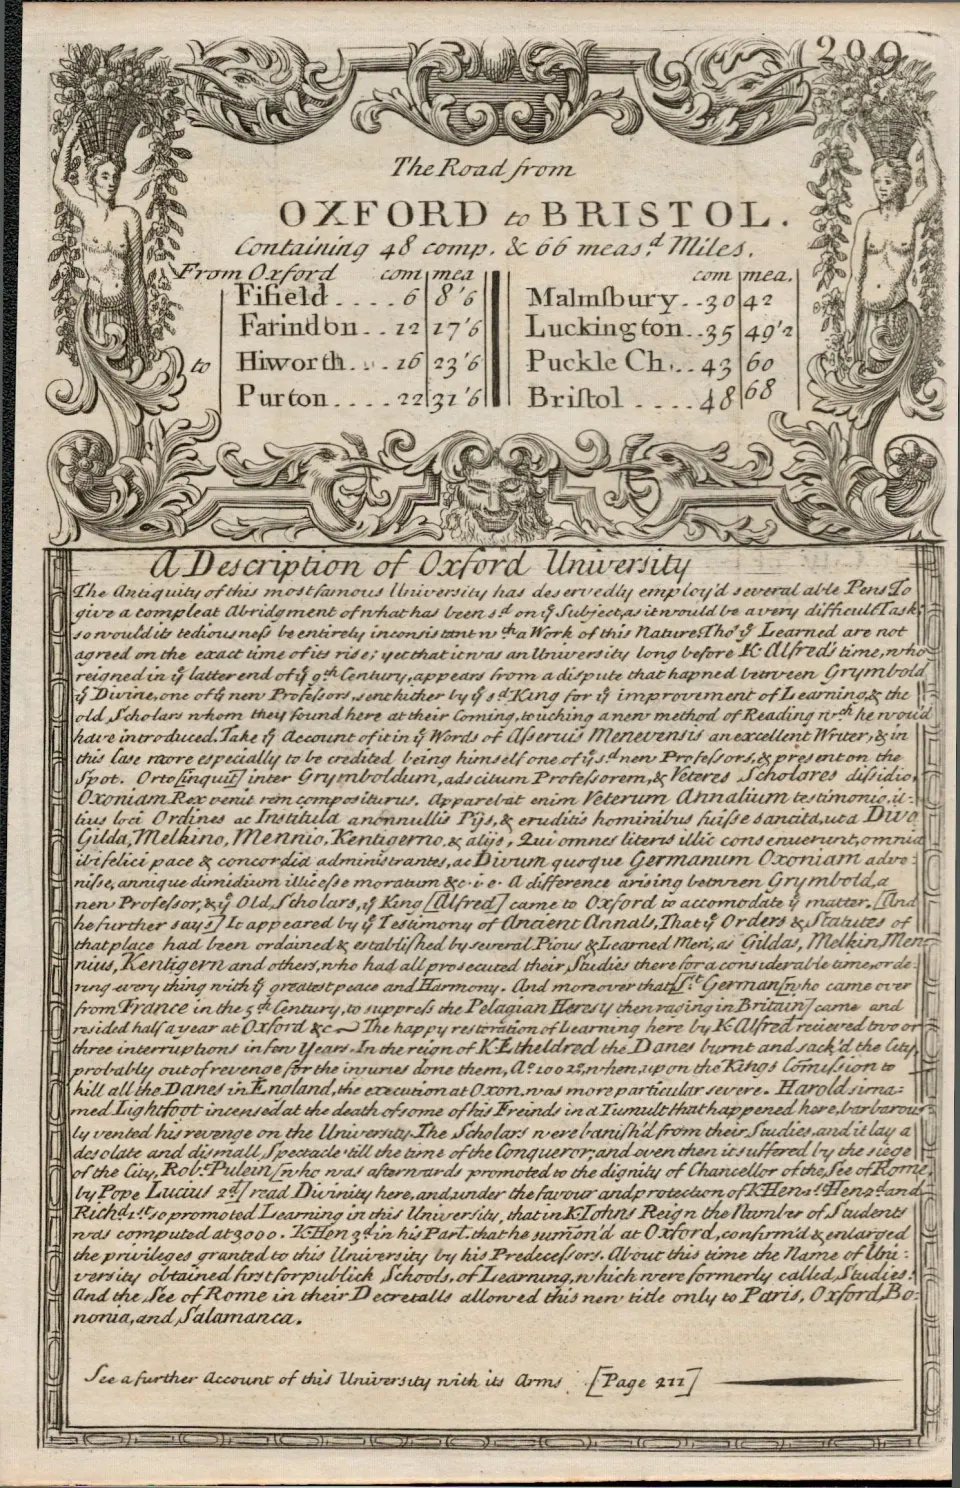 209
The Road from
OXFORD to BRISTOL.
Containing 48 comp. & 66 meas.d Miles.
From Oxford com mea com mea.
Fifield . . . . 6 8'6 Malmſbury . . 30 42
Farindon . . 12 17'6 Luckington . . 35 49'2
to Hiworth . . . 16 23'6 Puckle Ch . . . 43 60
Purton . . . . 22 31'6 Briſtol . . . . 48 68
A Description of Oxford University
The Antiquity of this most famous University has deservedly employ'd several able Pens To
give a compleat Abridgment of what has been s.d on ẏ Subject, as it would be a very difficult Task,
so would its tediousneſs be entirely inconsistant wth a Work of this Nature. Tho' ẏ Learned are not
agreed on the exact time of its rise; yet that it was an University long before K. Alfred's time, who
reigned in ẏ latter end of ẏ 9th Century, appears from a dispute that hapned between Grymbold
ẏ Divine, one of ẏ new Profeſsors, sent hither by ẏ s.d King for ẏ improvement of Learning, & the
old Scholars whom they found here at their Coming, touching a new method of Reading wch he would
have introduced. Take ẏ Account of it in ẏ Words of Aſseruis Menevensis an excellent Writer, & in
this last more especially to be credited being himself one of ẏ s.d new Profeſsors, & present on the
Spot. Orto [inquit] inter Grymboldum, adscitum Profeſsorem, & Veteres Scholares diſsidio,
Oxoniam Rex venit rem compositurus. Apparebat enim Veterum Annalium testimonio, il-
lius loci Ordines ac Instituta anonnullis Pijs, & eruditis hominibus fuiſse sancita, ut a Divo
Gilda, Melkino, Mennio, Kentigerno, & alijs, Qui omnes literis illic consenuerunt, omnia
ibi felici pace & concordia administrantes, ac Divum quoque Germanum Oxoniam adve-
niſse, annique dimidium illic eſse moratum &c. i. e. A difference arising between Grymbold, a
new Profeſsor, & ẏ Old Scholars, ẏ King [Alfred] came to Oxford to accomodate ẏ matter. [And
he further says] It appeared by ẏ Testimony of Ancient Annals, That ẏ Orders & Statutes of
that place had been ordained & establiſhed by several Pious & Learned Men, as Gildas, Melkin, Men-
nius, Kentigern and others, who had all prosecuted their Studies there for a considerable time, orde-
ring every thing with ẏ greatest peace and Harmony. And moreover that St. German [who came over
from France in the 5th Century, to suppreſs the Pelagian Heresy then raging in Britain] came and
resided half a year at Oxford &c. The happy restoration of Learning here by K. Alfred recieved two or
three interruptions in few Years. In the reign of K. Etheldred the Danes burnt and sack'd the City,
probably out of revenge for the injuries done them, Ao. 1002, when, upon the Kings Comiſsion to
kill all the Danes in England, the execution at Oxon, was more particular severe. Harold sirna-
med Lightfoot incensed at the death of some of his Freinds in a Tumult that happened here, barbarous-
ly vented his revenge on the University. The Scholars were baniſh'd from their Studies, and it lay a
desolate and dismall Spectacle till the time of the Conqueror; and even then it suffered by the siege
of the City, Robt. Pulein [who was afterwards promoted to the dignity of Chancellor of the See of Rome,
by Pope Lucius 2d] read Divinity here, and, under the favour and protection of K. Hen 1st Hen 2d and
Richd 1st so promoted Learning in this University, that in K. Johns Reign the Number of Students
was computed at 3000. K. Hen 3d in his Parl. that he sumon'd at Oxford, confirm'd & enlarged
the privileges granted to this University by his Predeceſsors. About this time the Name of Uni-
versity obtained first for publick Schools, of Learning, which were formerly called, Studies:
And the See of Rome in their Decretalls allowed this new title only to Paris, Oxford, Bo-
nonia, and Salamanca.
See a further Account of this University with its Arms. [Page 211]